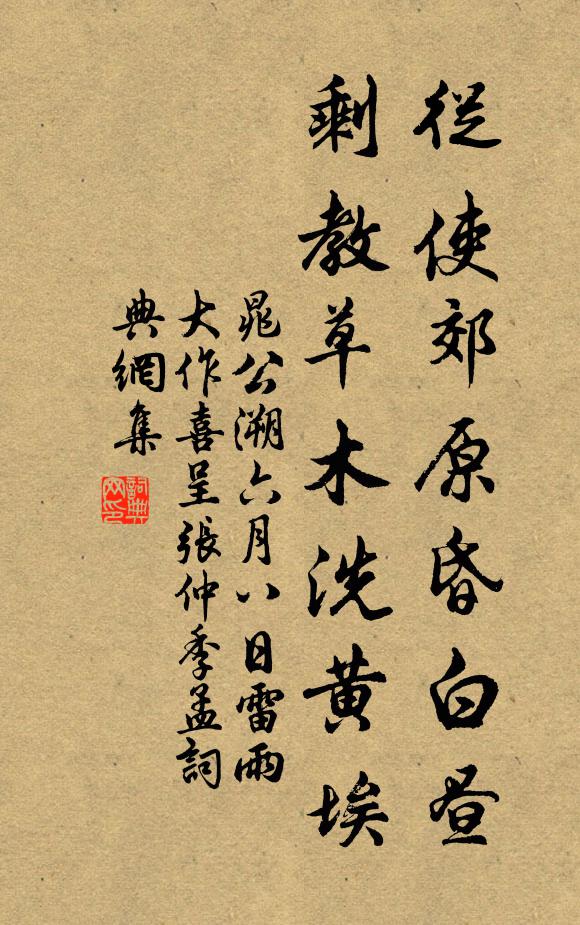 從使郊原昏白昼
剩教草木洗黄埃
晁公溯六月八日雷雨
大作喜呈張仲季孟詞
典網集
詞典
网印